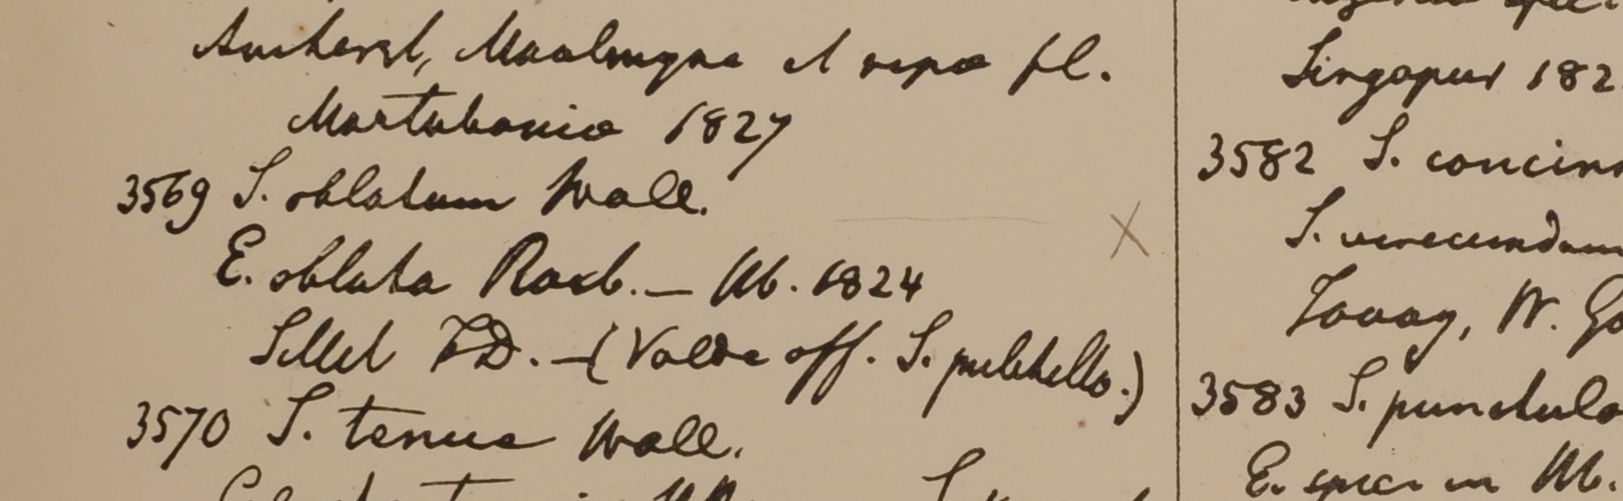 Amherst, Moalmyne et ripa fl.
Martabania 1827
3569 S. oblatum Wall.
E. oblata Roxb. — hb. 1824
Sillet F.D. — (Valde aff. S. pulchello.)
3570 S. tenue Wall.
Singapur 182
3582 S. concinn
S. verecundum
Tavoy, W. Go
3583 S. punctula
E. spec in hb.